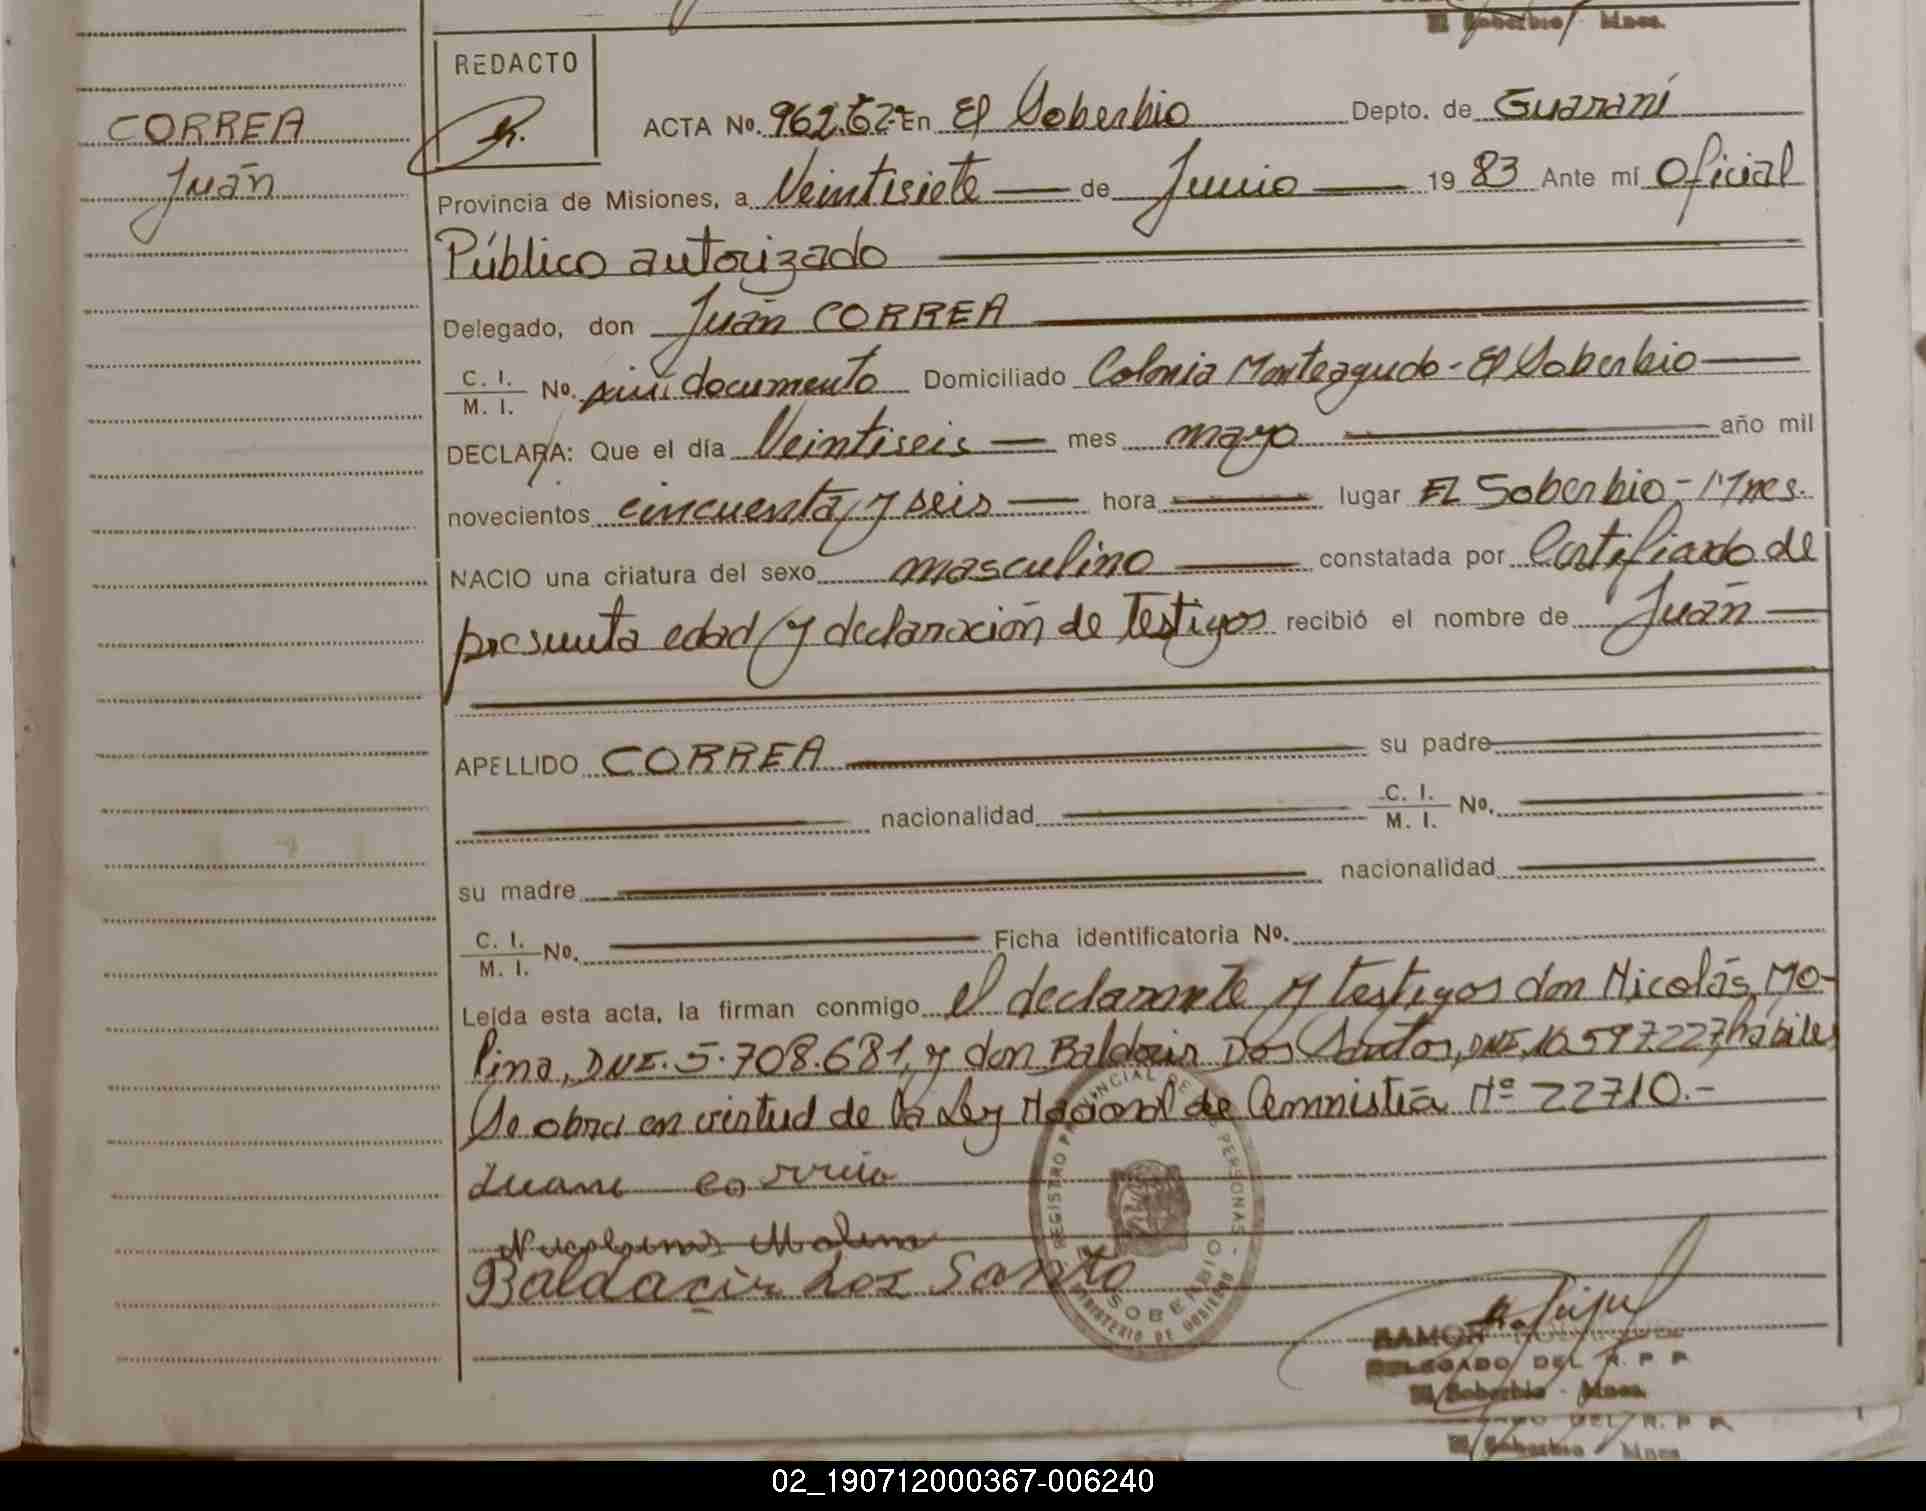 El Soberbio - Mnes.
REDACTO
CORREA
Juan
ACTA No. 962. En El Soberbio Depto. de Guaraní
Provincia de Misiones, a Veintisiete de Junio 19 83 Ante mí Oficial
Público autorizado
Delegado, don Juan CORREA
C. I. / M. I. No. sin documento Domiciliado Colonia Monteagudo - El Soberbio
DECLARA: Que el día Veintiseis mes mayo año mil
novecientos cincuenta y seis hora lugar El Soberbio - Mnes.
NACIO una criatura del sexo masculino constatada por Certificado de
presunta edad y declaración de Testigos recibió el nombre de Juan
APELLIDO CORREA su padre
nacionalidad C. I. / M. I. No.
su madre nacionalidad
C. I. / M. I. No. Ficha identificatoria No.
Leída esta acta, la firman conmigo el declarante y testigos don Nicolás Mo-
lina, DNI. 5.708.681, y don Baldacir Dos Santos, DNI. 10.597.227, hábiles
Se obra en virtud de la Ley Nacional de Amnistia Nº 22710.-
Juan correia
Molina
Baldacir dos Santo
REGISTRO PROVINCIAL DE PERSONAS
SOBERBIO
MINISTERIO DE GOBIERNO
RAMON
DELEGADO DEL R. P. P.
El Soberbio - Mnes.
DEL R. P. P.
El Soberbio - Mnes.
02_190712000367-006240